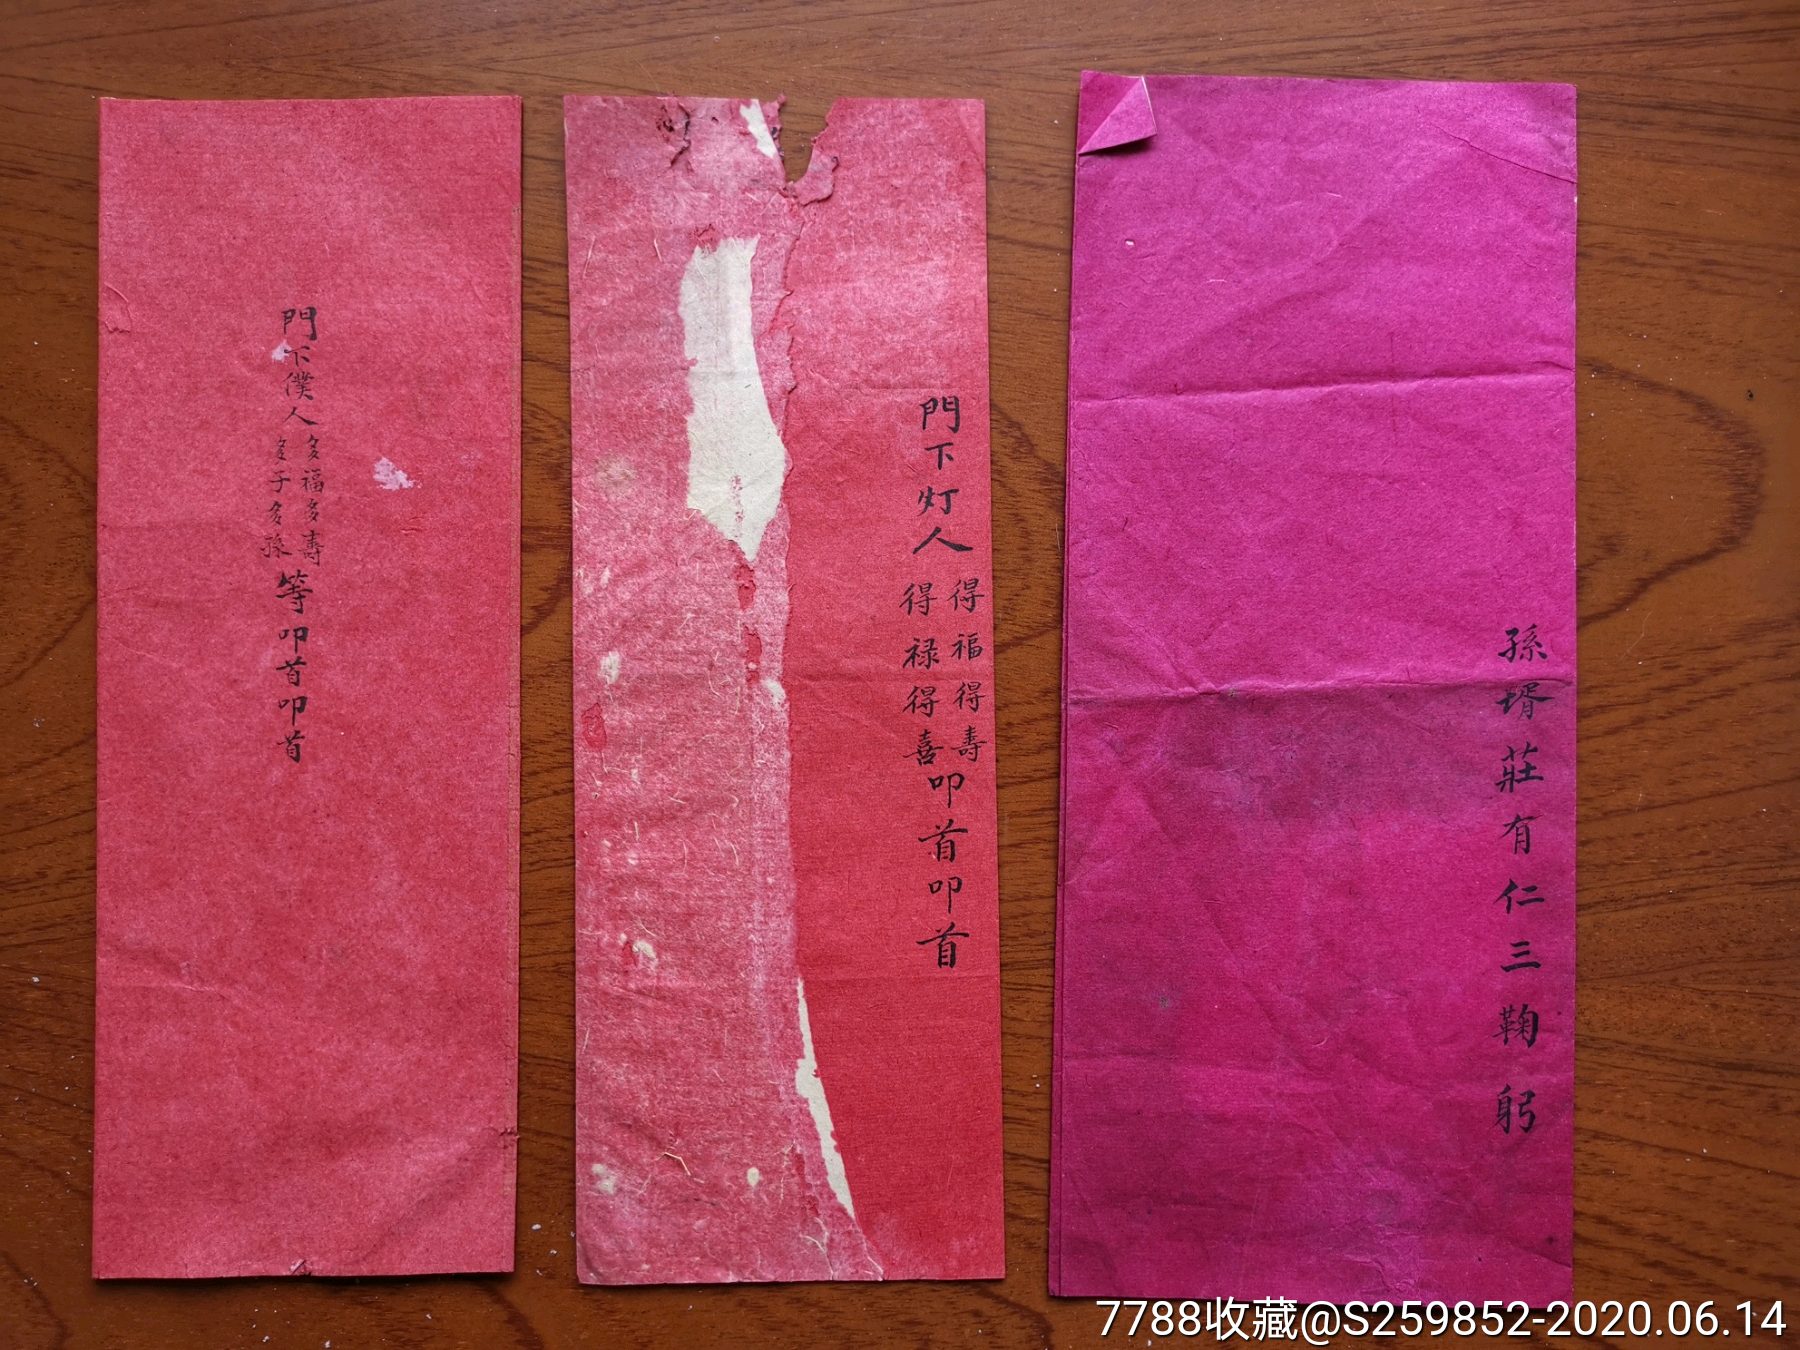 門下僕人
多福多壽
多子多孫
等叩首叩首
門下灯人
得福得壽
得禄得喜
叩首叩首
孫壻莊有仁三鞠躬
7788收藏@S259852-2020.06.14